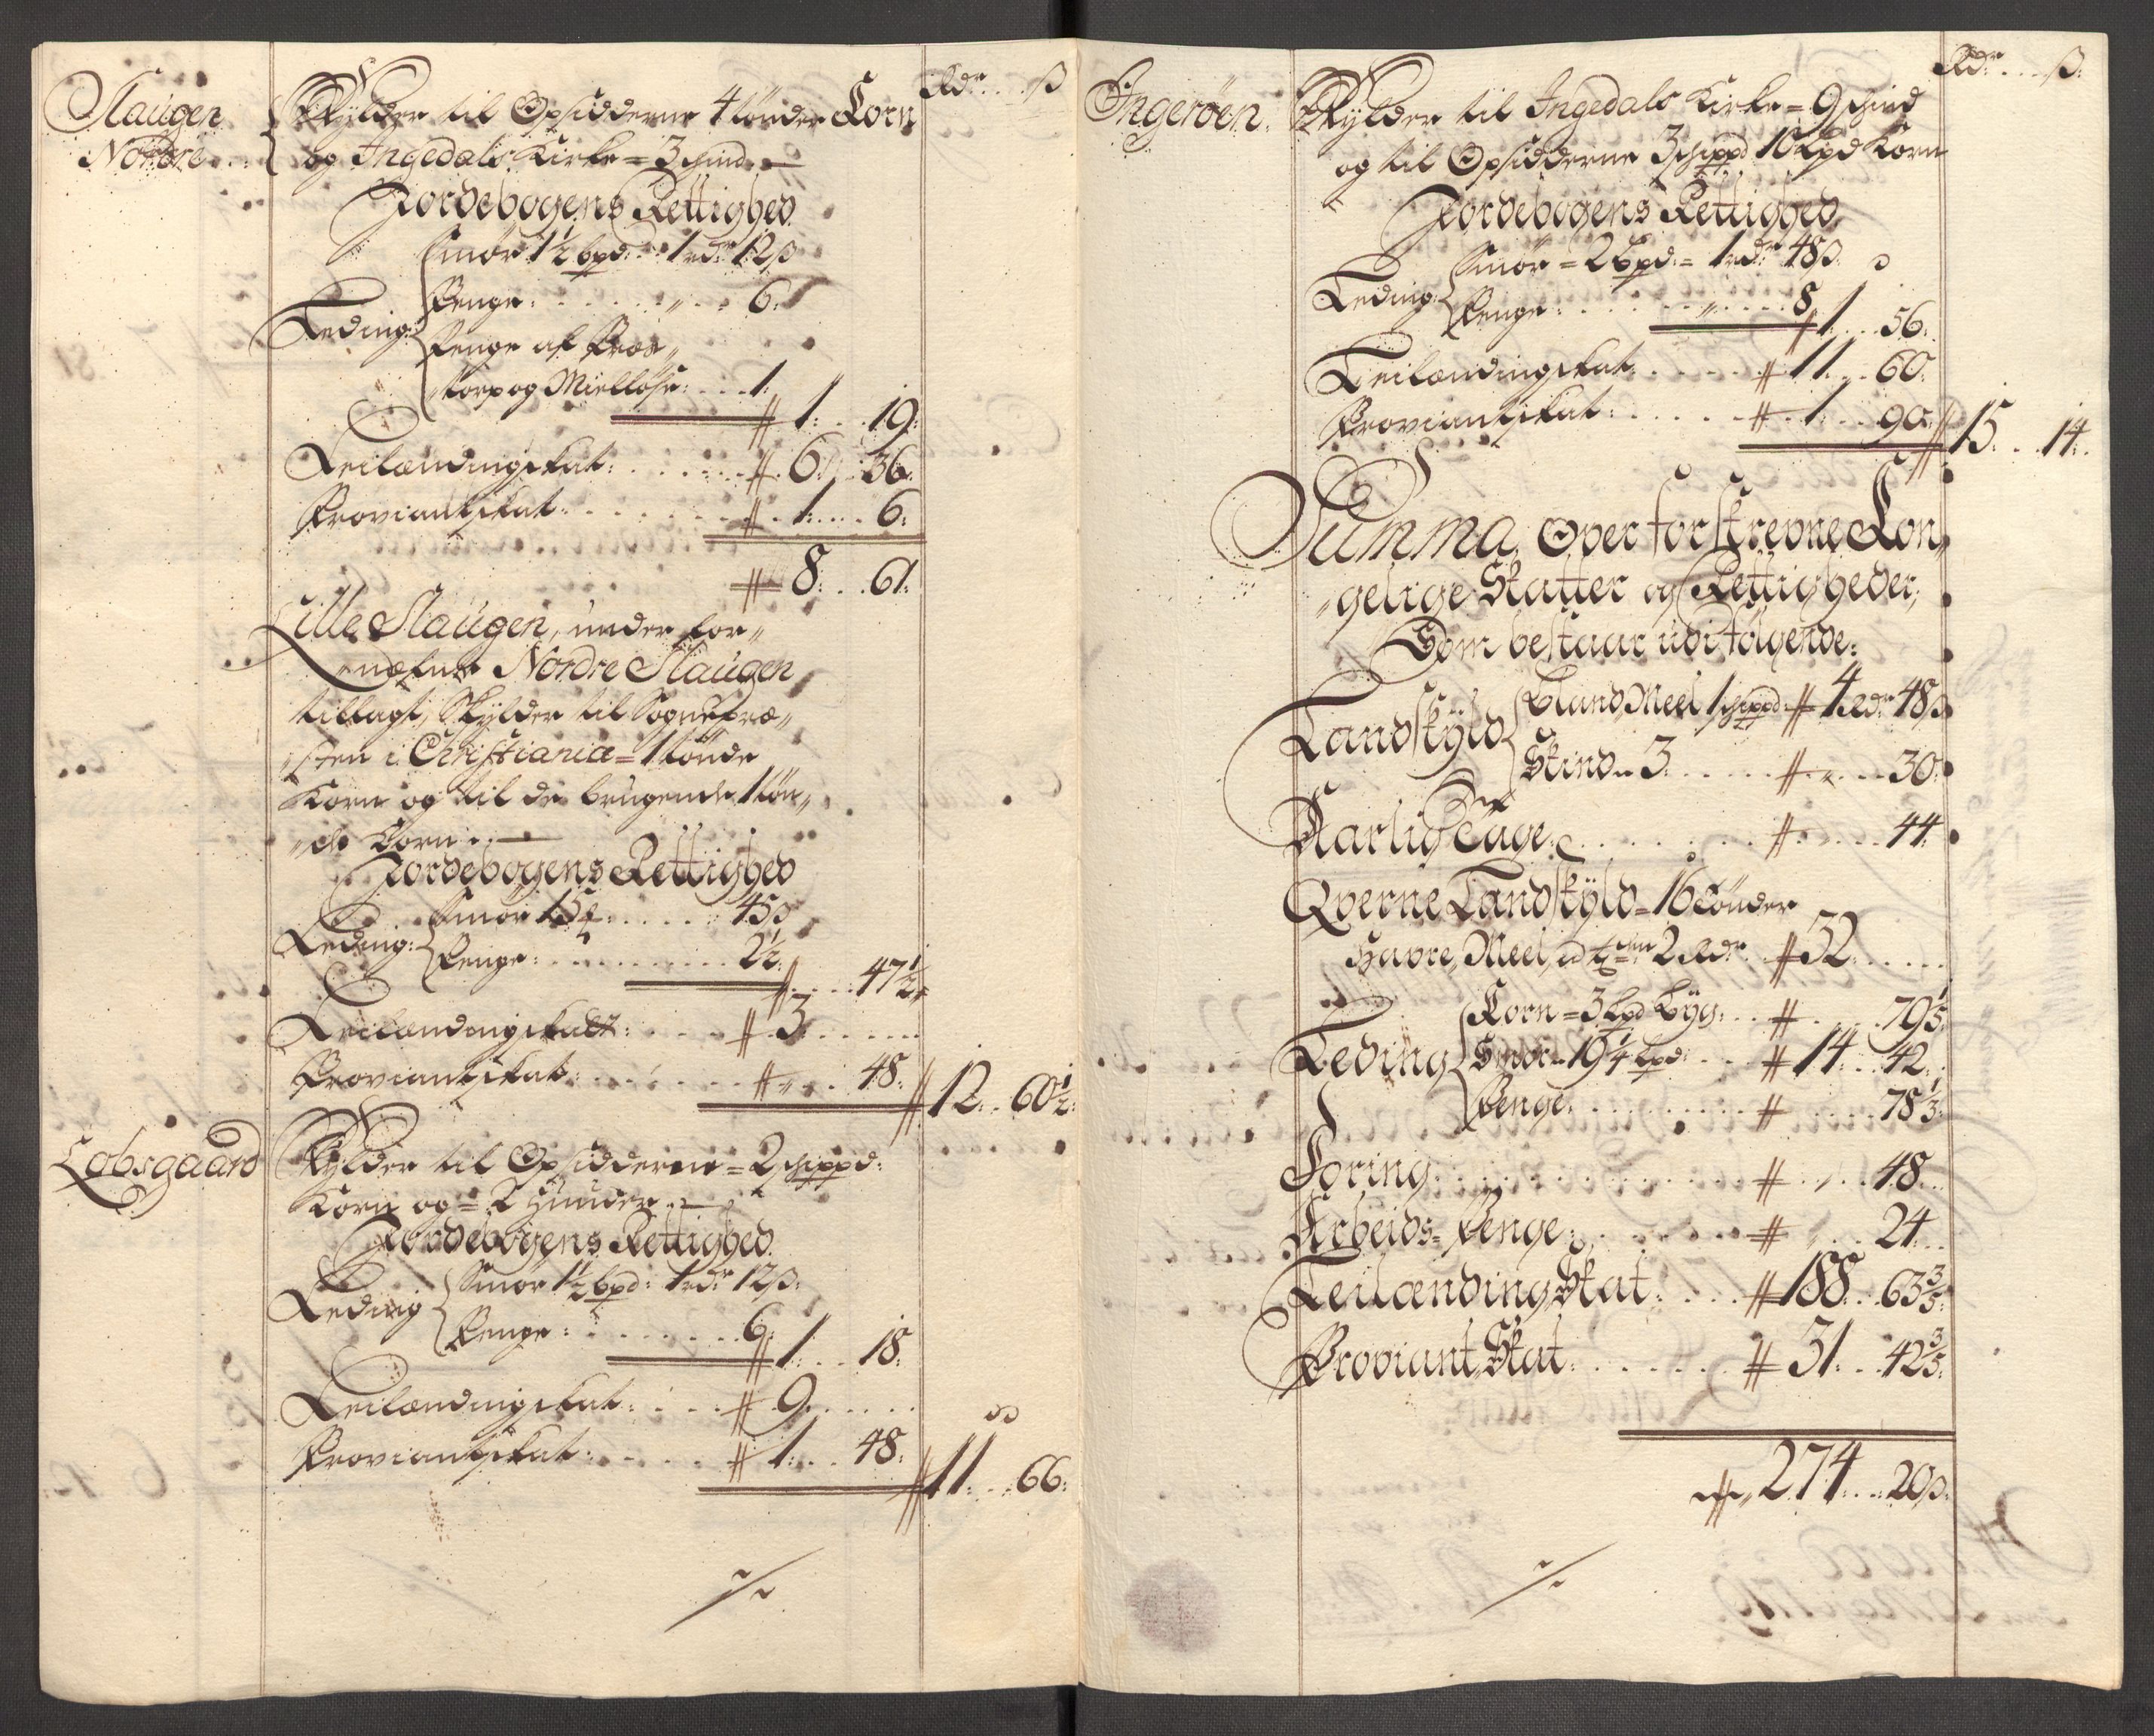 Rdr. ß
Slaugen Nordre
Skylder til Opsidderne 4 tönder Corn
og Ingedals Kirke = 3 schind
Jordebogens Rettighed
Leding: Smör 1½ bpd: 1 rdr 12 ß
Penge: 6:
Penge af Præs„
„torp og Mielløse: 1:
1: 19:
Leilændingskat: 6: 36:
Proviantskat: 1: 6:
8: 61:
Lille Slaugen, under for„
„nefnte Nordre Slaugen
tillagt, Skylder til Sognepræ„
„sten i Christiania = 1 tönde
Korn og til de brugende 1 tön„
„de Corn:
Jordebogens Rettighed
Leding: Smör 15 45 ß
Penge: 2½:
47½
Leilændingskatt: 3:
Proviantskat: 48: 12: 60½:
Lobsgaard
Skylder til Opsidderne = 2 schippd:
Korn og = 2 Huuder
Jordebogens Rettighed
Leding Smör 1½ bpd: 1 rdr 12 ß:
Penge: 6:
1: 18:
Leilændingskat: 9:
Proviantskat: 1: 48: 11: 66:
Rdr. ß:
Ingeröen:
Skylder til Ingedals Kirke = 9 schind
og til Opsidderne 3 schippd 10 Lpd Korn
Jordebogens Rettighed
Leding: Smör = 2 bpd: = 1 rdr 48 ß.
Penge: 8
1: 56:
Leilændingskat: 11: 60:
Proviantskat: 1: 90: 15: 14:
Summa Over forskrevne Kon„
„gelige Skatter og Rettigheder,
Som bestaar udi fölgende:
Landskÿld Bland Meel 1 schippd 4 Rdr 48 ß
Skind = 3 30:
Aarlig Tuge: 44:
Qverne Landskÿld = 16 tönder
Havre, Meel, ad tdn 2 Rdr. 32
Leding Korn = 3 Lpd Bÿg: 79⅕:
Smör = 19¼ bpd: 14: 42
Penge: 78⅓:
Foring: 48
Arbeids = Penge: 24
Leilænding Skat: 188: 63⅗:
Proviant Skat: 31: 42⅗:
274: 20 ß: